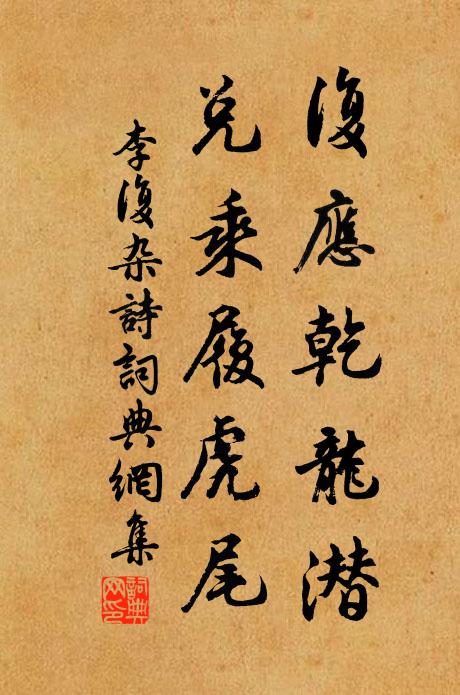 復應乾龍潜
兑乘履虎尾
李復杂詩詞典網集
詞典网印